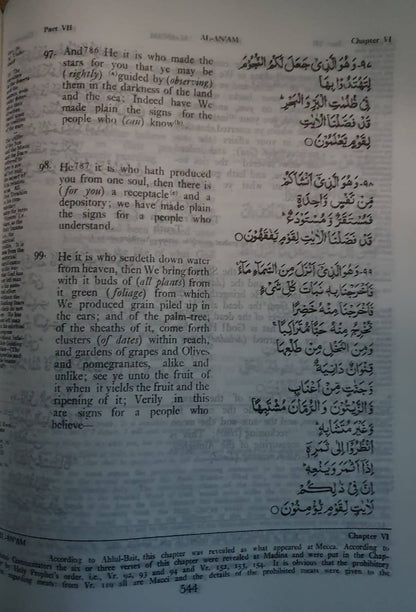 Part VII AL-AN'AM Chapter VI
97. And786 He it is who made the
stars for you that ye may be
(rightly) guided by (observing)
them in the darkness of the land
and the sea; Indeed have We
made plain the signs for the
people who (can) know
98. He787 it is who hath produced
you from one soul, then there is
(for you) a receptacle and a
depository; we have made plain
the signs for a people who
understand.
99. He it is who sendeth down water
from heaven, then We bring forth
with it buds of (all plants) from
it green (foliage) from which
We produced grain piled up in
the ears; and of the palm-tree,
of the sheaths of it, come forth
clusters (of dates) within reach,
and gardens of grapes and Olives
and pomegranates, alike and
unlike; see ye unto the fruit of
it when it yields the fruit and the
ripening of it; Verily in this
are signs for a people who
believe—
٩٧- وَهُوَ الَّذِيْ جَعَلَ لَكُمُ النُّجُوْمَ
لِتَهْتَدُوْا بِهَا
فِيْ ظُلُمٰتِ الْبَرِّ وَالْبَحْرِ ؕ
قَدْ فَصَّلْنَا الْاٰيٰتِ
لِقَوْمٍ يَّعْلَمُوْنَ ○
٩٨- وَهُوَ الَّذِيْٓ اَنْشَاَكُمْ
مِّنْ نَّفْسٍ وَّاحِدَةٍ
فَمُسْتَقَرٌّ وَّمُسْتَوْدَعٌ ؕ
قَدْ فَصَّلْنَا الْاٰيٰتِ لِقَوْمٍ يَّفْقَهُوْنَ ○
٩٩- وَهُوَ الَّذِيْٓ اَنْزَلَ مِنَ السَّمَآءِ مَآءً
فَاَخْرَجْنَا بِهٖ نَبَاتَ كُلِّ شَيْءٍ
فَاَخْرَجْنَا مِنْهُ خَضِرًا
نُّخْرِجُ مِنْهُ حَبًّا مُّتَرَاكِبًا ۚ
وَمِنَ النَّخْلِ مِنْ طَلْعِهَا
قِنْوَانٌ دَانِيَةٌ
وَّجَنّٰتٍ مِّنْ اَعْنَابٍ
وَّالزَّيْتُوْنَ وَالرُّمَّانَ مُشْتَبِهًا
وَّغَيْرَ مُتَشَابِهٍ ؕ
اُنْظُرُوْٓا اِلٰى ثَمَرِهٖٓ
اِذَآ اَثْمَرَ وَيَنْعِهٖ ؕ
اِنَّ فِيْ ذٰلِكُمْ
لَاٰيٰتٍ لِّقَوْمٍ يُّؤْمِنُوْنَ ○
AL-AN'AM Chapter VI
According to Ahlul-Bait, this chapter was revealed as what appeared at Mecca. According to
Commentators the six or three verses of this chapter were revealed at Madina and were put in the Chap-
Prophet's order, i.e., Vr. 92, 93 and 94 and Vr. 152, 153, 154. It is obvious that the prohibitory
regarding meats: from Vr. 119 all are Macci and the details of the prohibited meats were given to the
544